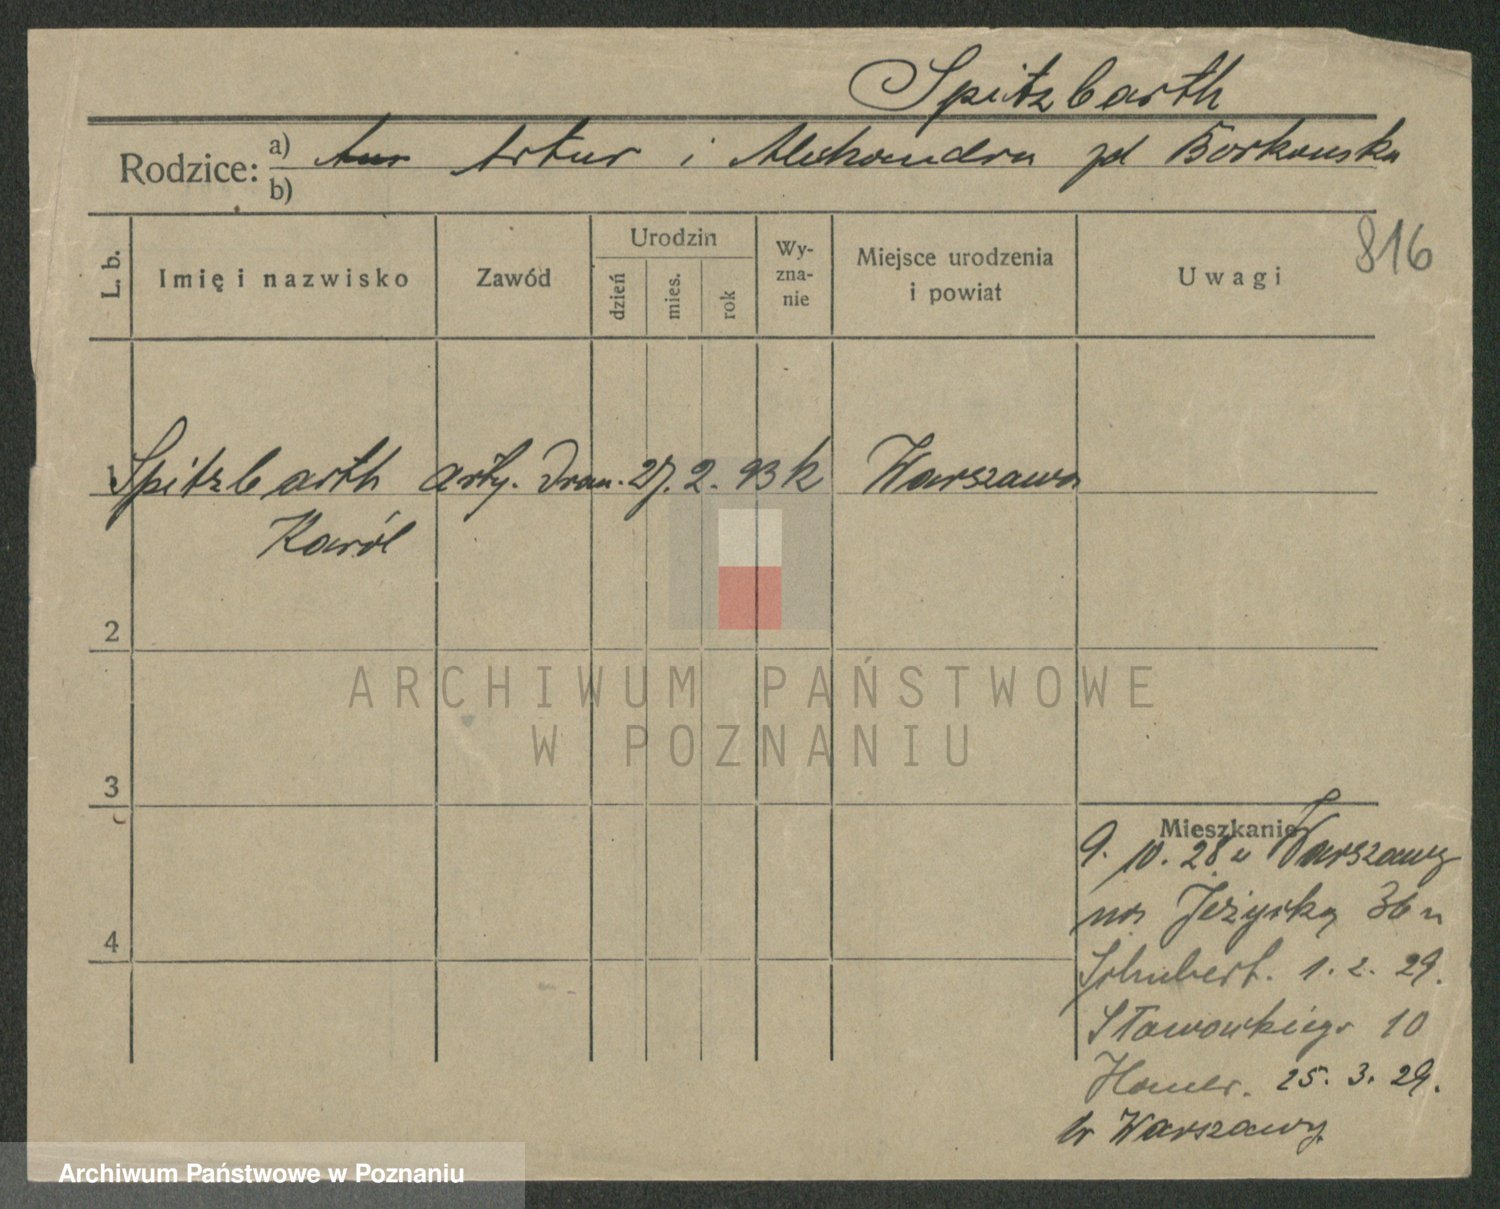 Spitzbarth
Rodzice: a) Artur i Aleksandra zd Borkowska
b)
816
L. b. Imię i nazwisko Zawód Urodzin dzień mies. rok Wy-zna-nie Miejsce urodzenia i powiat Uwagi
1 Spitzbarth arty. dram. 27. 2. 93 k Warszawa
Karól
2
3
4
Mieszkanie
9. 10. 28 z Warszawy
na Jeżycką 36 u
Schubert. 1. 2. 29.
Słowackiego 10
25. 3. 29.
do Warszawy
ARCHIWUM PAŃSTWOWE
W POZNANIU
Archiwum Państwowe w Poznaniu